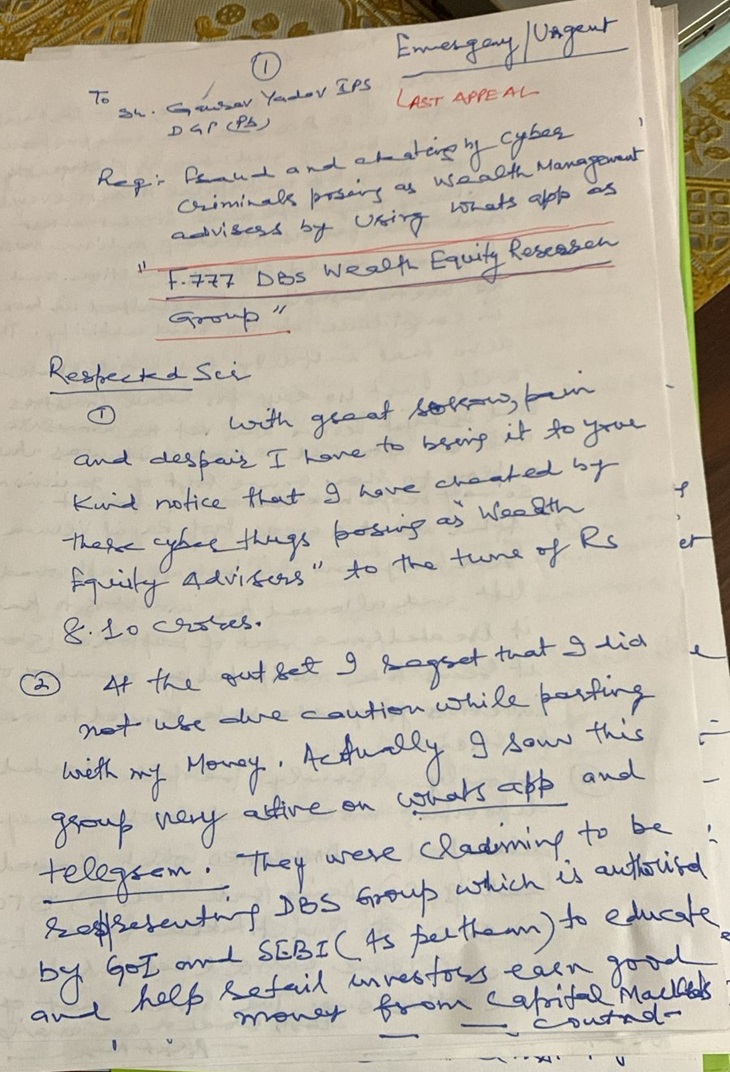 ①
Emergency/Urgent
To
Sh. Gaurav Yadav IPS
DGP (Pb)
LAST APPEAL
Reg:- Fraud and cheating by cyber
criminals posing as Wealth Management
advisers by using whats app as
"F.777 DBS Wealth Equity Research
Group"
Respected Sir
① With great sorrow, pain
and despair I have to bring it to your
kind notice that I have cheated by
these cyber thugs posing as "Wealth
Equity Advisers" to the tune of Rs
8.10 crores.
② At the out set I regret that I did
not use due caution while parting
with my Money. Actually I saw this
group very active on whats app and
telegram. They were claiming to be
representing DBS Group which is authorised
by GoI and SEBI (As per them) to educate
and help retail investors earn good
money from Capital Markets
— — Contnd-